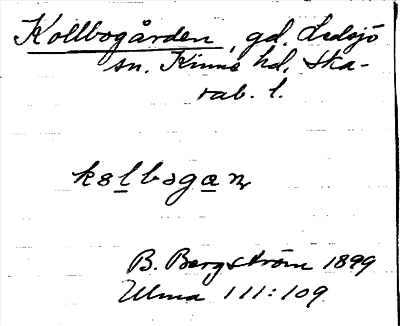 Kollbogården, gd. Ledsjö
sn. Kinne hd, Ska-
rab. l.
kolbogan
B. Bergström 1899
Ulma 111:109